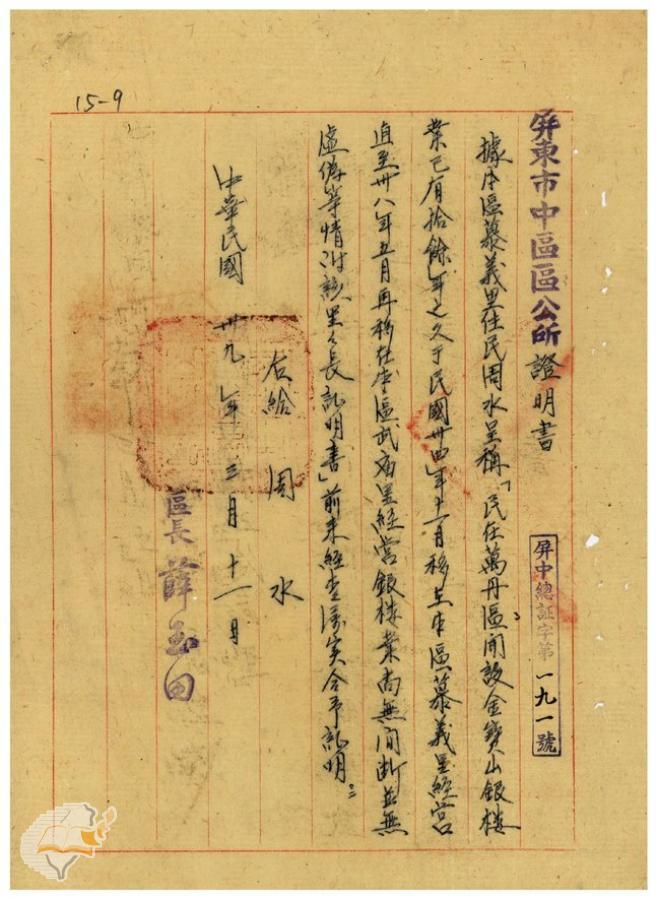 15-9
屏東市中區區公所證明書
屏中總証字第一九一號
據本區慕義里住民周水呈稱「民在萬丹區開設金寶山銀樓
業已有拾餘年之久于民國卅四年十一月移上本區慕義里經营
直至卅八年五月再移在本區武庙里經营銀楼業尚無间断並無
虛偽等情附該里々長証明書」前来經查属实合予証明
右給 周 水
中華民國 卅九年 三月 十一日
區長 薛玉田